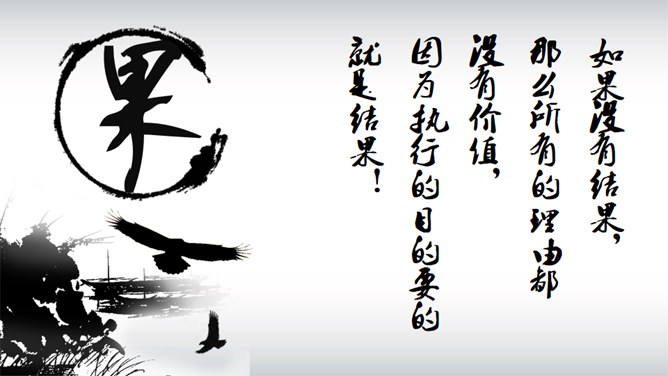 果
如果没有结果，
那么所有的理由都
没有价值，
因为执行的目的要的
就是结果！